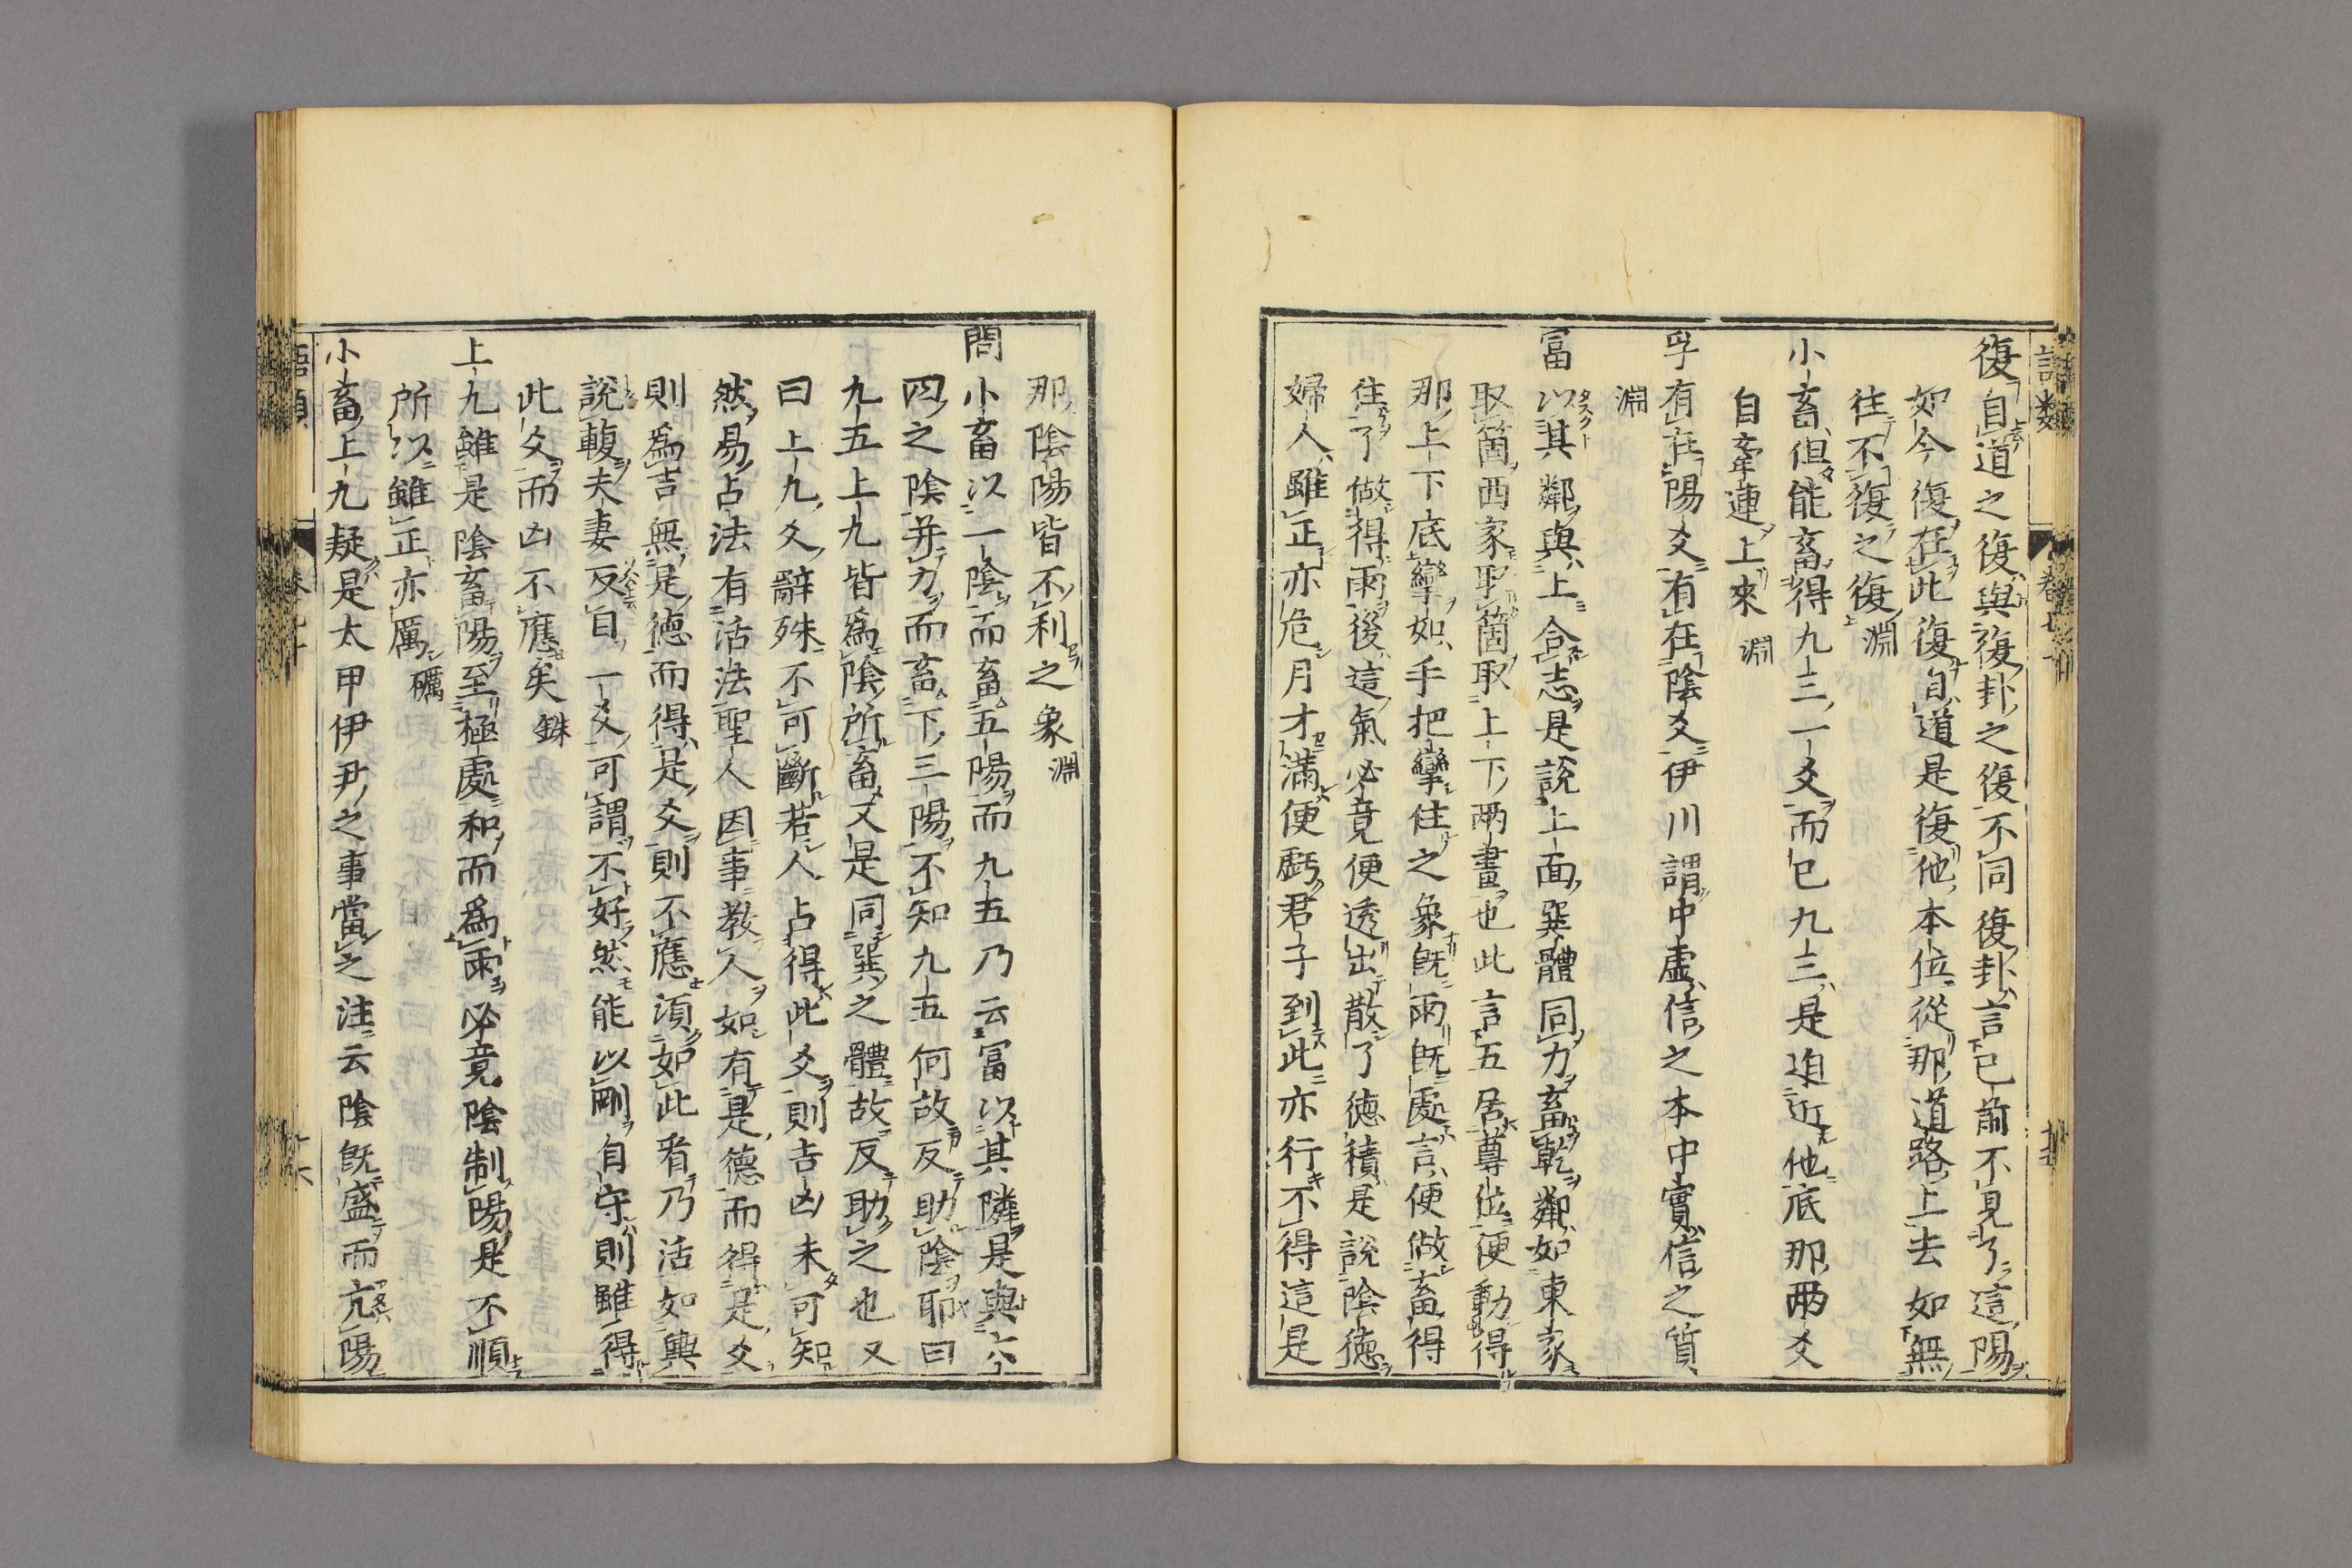 復自道之復與復卦之復不同復卦言已前不見了這陽
如今復在此復自道是復他本位從那道路上去如無
往不復之復 淵
小畜但能畜得九三一爻而已九三是迫近他底那兩爻
自牽連上來 淵
孚有在陽爻有在陰爻伊川謂中虛信之本中實信之質
淵
富以其鄰與上合志是說上面巽體同力畜乾鄰如東家
取箇西家取箇取上下兩畫也此言五居尊位便動得
那上下底攣如手把攣住之象既雨既處言便做畜得
住了做得雨後這氣必竟便透出散了德積是說陰德
婦人雖正亦危月才滿便虧君子到此亦行不得這是
那陰陽皆不利之象 淵
問小畜以一陰而畜五陽而九五乃云富以其隣是與六
四之陰并力而畜下三陽不知九五何故反助陰耶曰
九五上九皆爲陰所畜又是同巽之體故反助之也又
曰上九爻辭殊不可斷若人占得此爻則吉凶未可知
然易占法有活法聖人因事教人如有是德而得是爻
則爲吉無是德而得是爻則不應須如此看乃活如輿
說輹夫妻反目一爻可謂不好然能以剛自守則雖得
此爻而凶不應矣 銖
上九雖是陰畜陽至極處和而爲雨必竟陰制陽是不順
所以雖正亦厲 礪
小畜上九疑是太甲伊尹之事當之注云陰既盛而亢陽